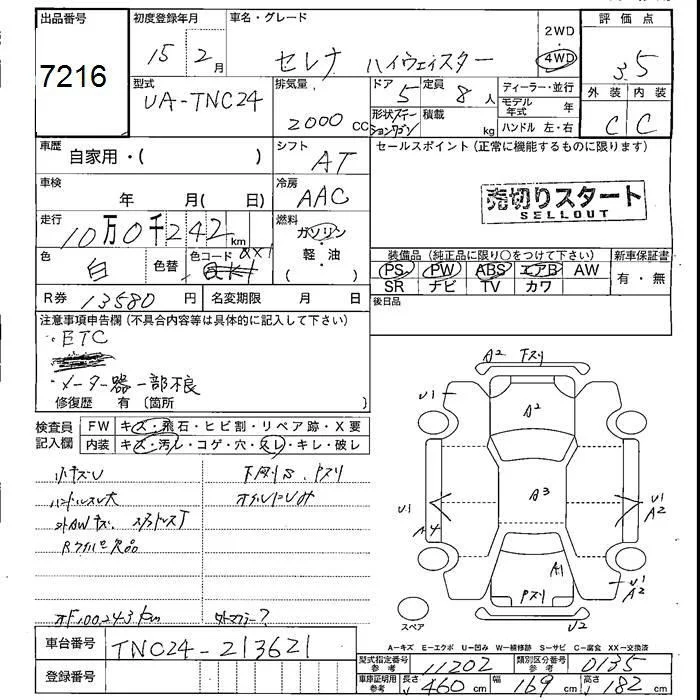 出品番号
7216
初度登録年月
15 2月
車名・グレード
セレナ ハイウェイスター
2WD
4WD
評価点
3.5
外装 内装
C C
型式
UA-TNC24
排気量
2000 CC
ドア
5
定員
8人
形状 ステーションワゴン
積載
kg
ディーラー・並行
モデル年式 年
ハンドル 左・右
車歴
自家用・( )
シフト
AT
セールスポイント(正常に機能するものに限ります)
車検
年 月( 日)
冷房
AAC
売切りスタート
SELLOUT
走行
10万0千242km
燃料
ガソリン・軽・油
( )
色
白
色替
色コード
QX1
装備品(純正品に限り○をつけて下さい)
PS PW ABS エアB AW
SR ナビ TV カワ
新車保証書
有・無
R券 13580円
名変期限 月 日
後日品
注意事項申告欄(不具合内容等は具体的に記入して下さい)
・ETC
・メーター器一部不良
修復歴 有〔箇所 〕
検査員記入欄
FW キズ・飛石・ヒビ割・リペア跡・X要
内装 キズ・汚レ・コゲ・穴・スレ・キレ・破レ
小キズU
ハンドルスレ大
下廻りS、Pスリ
オイルにじみ
外AWキズ、スタッドレスT
Rワイパー欠品
オF100,243km
A2 下スリ
U1
A2
A3
U1
A4
U1
A2
A1
Pスリ
U1
A2
U2
スペア
車台番号
TNC24-213621
登録番号
A-キズ E-エクボ U-凹み W-補修跡 S-サビ C-腐食 XX-交換済
型式指定番号 参考
11202
類別区分番号 参考
0135
車庫証明用 参考
長さ 460cm
幅 169cm
高さ 182cm